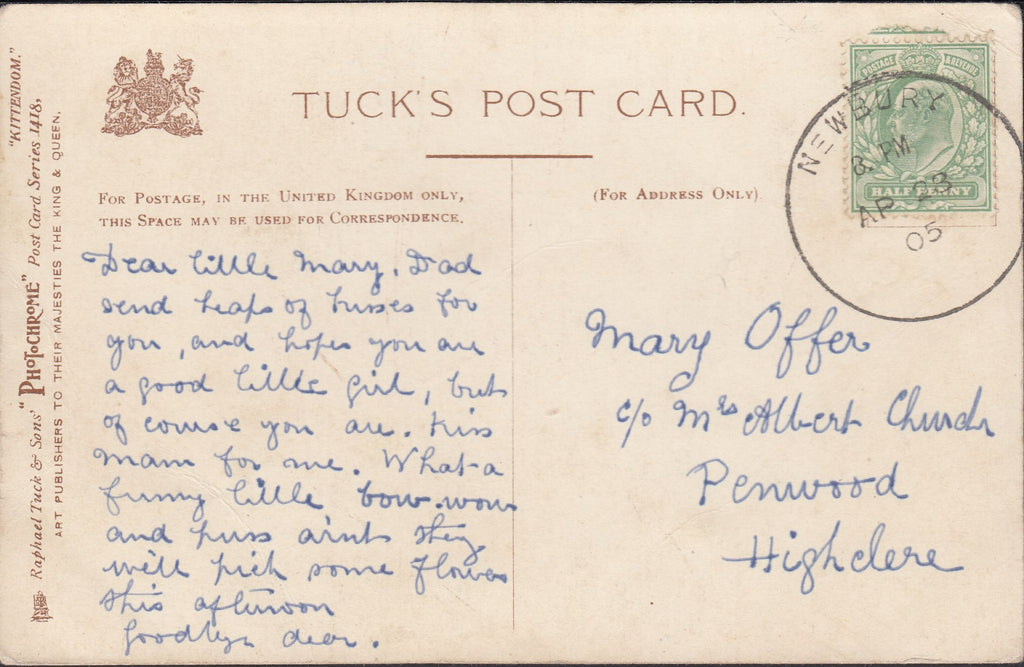 "KITTENDOM."
Raphael Tuck & Sons' "PHOTOCHROME" Post Card Series 1418,
ART PUBLISHERS TO THEIR MAJESTIES THE KING & QUEEN.
TUCK'S POST CARD.
FOR POSTAGE, IN THE UNITED KINGDOM ONLY,
THIS SPACE MAY BE USED FOR CORRESPONDENCE.
(FOR ADDRESS ONLY)
POSTAGE & REVENUE
HALF PENNY
NEWBURY
8 PM
AP 23
05
Dear little Mary. Dad
send heaps of kisses for
you, and hopes you are
a good little girl, but
of course you are. Kiss
Mam for me. What a
funny little bow-wow
and puss aint they
will pick some flowers
this afternoon
Goodbye dear.
Mary Offer
c/o Mrs Albert Church
Penwood
Highclere